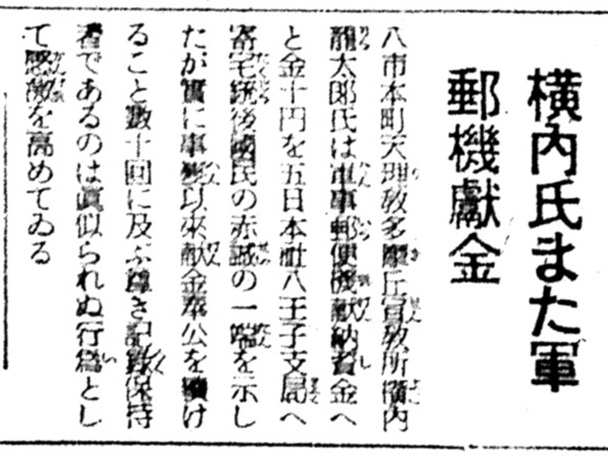 横内氏また軍
郵機獻金
八市本町天理教多摩丘宣教所横内
龍太郎氏は軍事郵便機献納資金へ
と金十円を五日本社八王子支局へ
寄宅銃後國民の赤誠の一端を示し
たが實に事變以來献金奉公を續け
ること數十回に及ぶ尊き記錄保持
者であるのは眞似られぬ行爲とし
て感激を高めてゐる